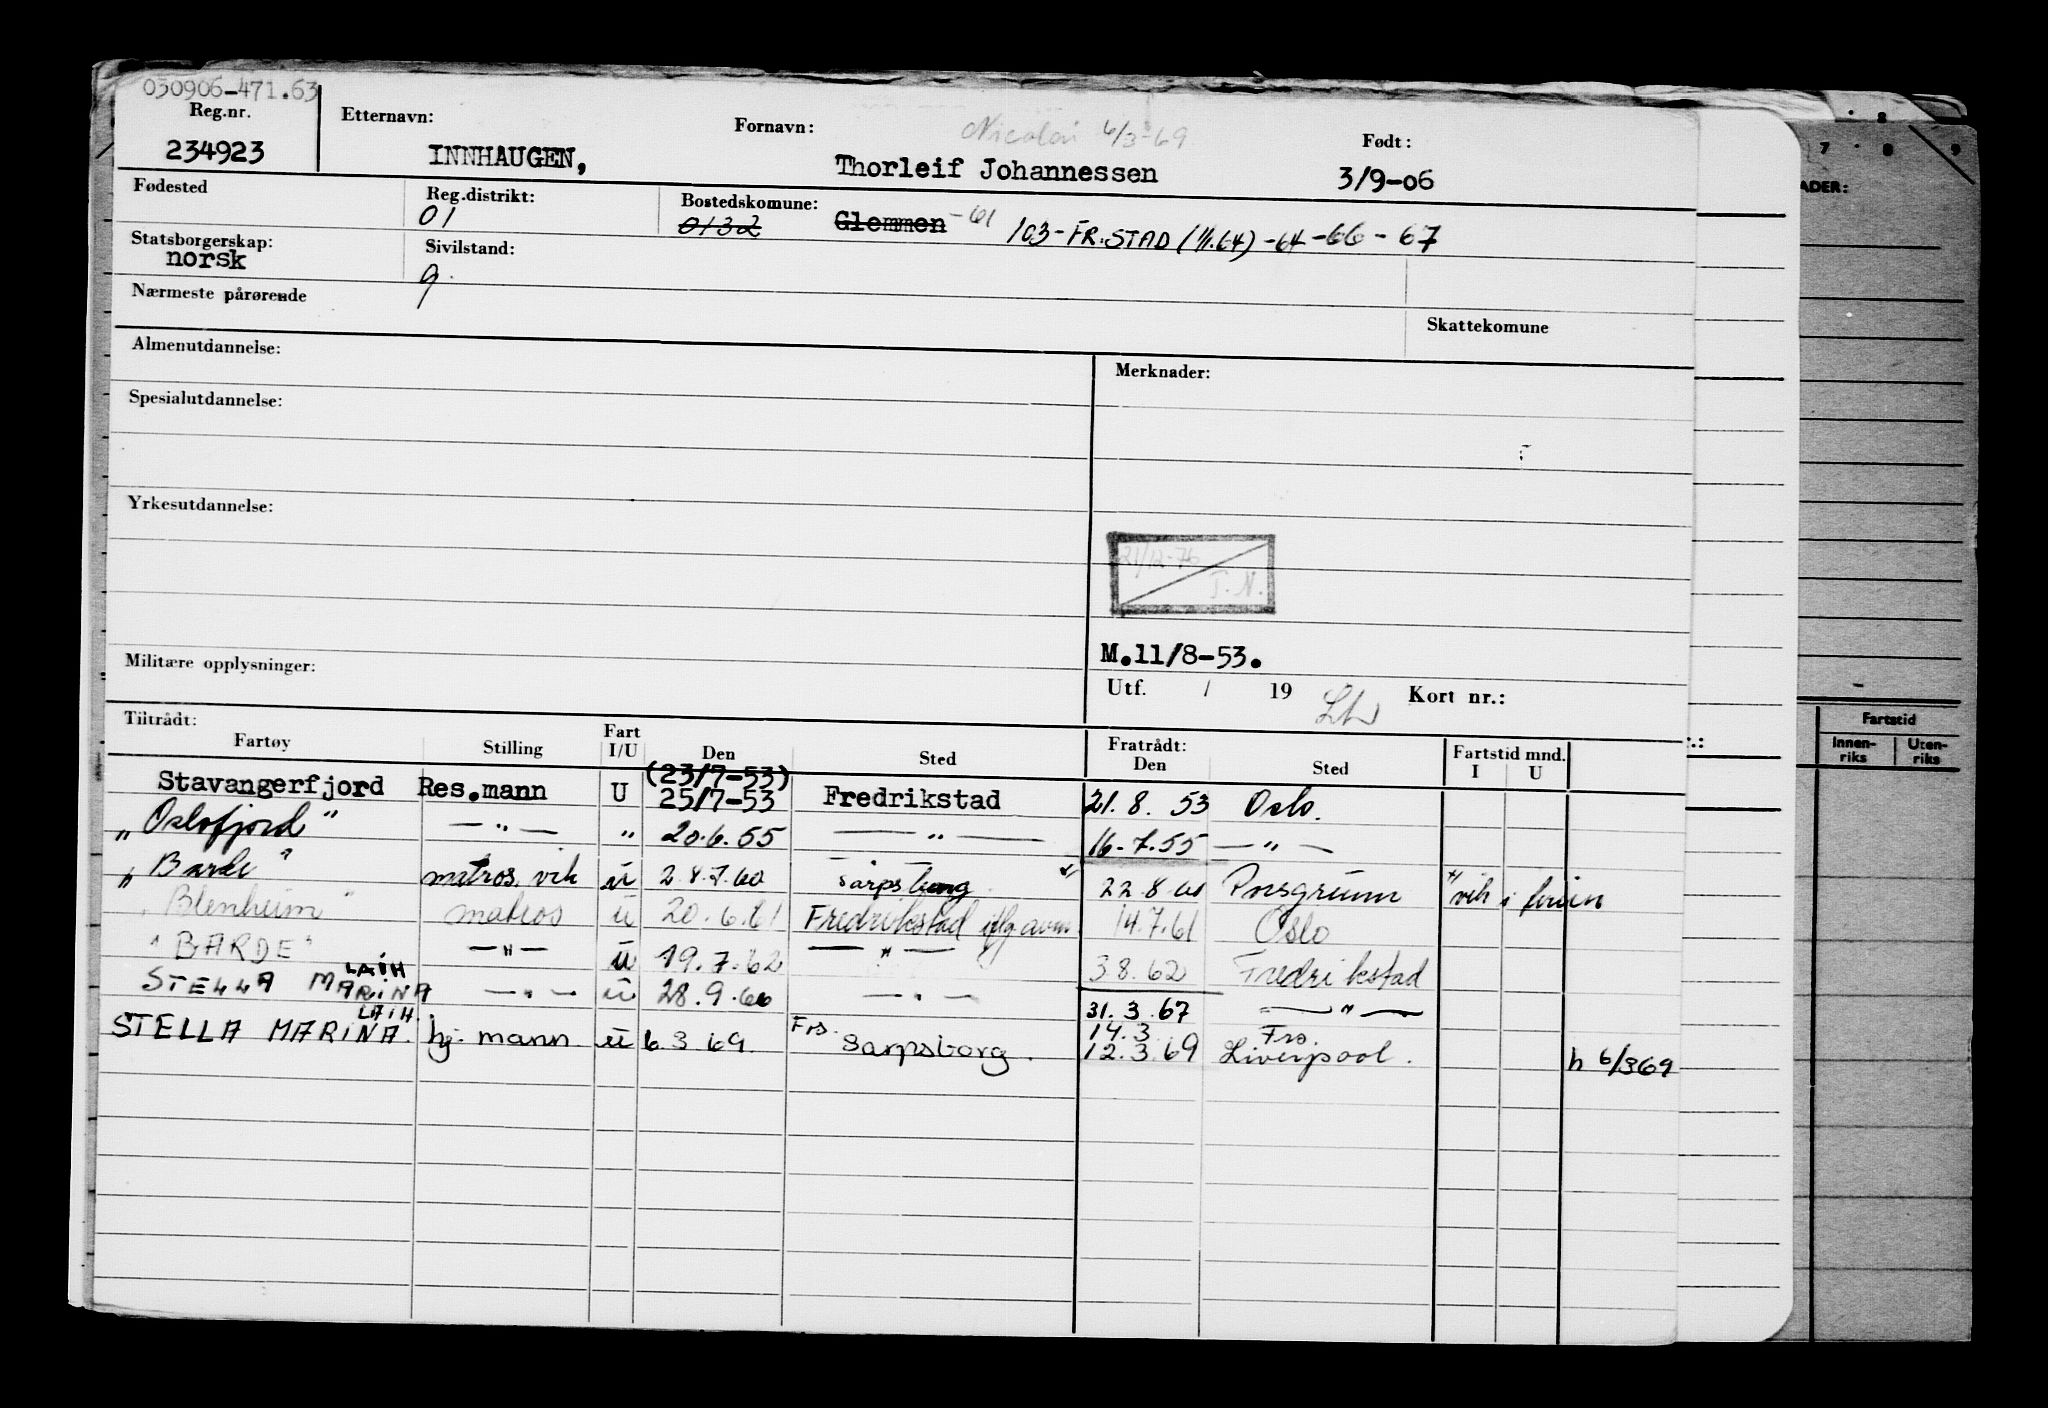 030906-471.63
Reg.nr. Etternavn: Fornavn: Nicolai 6/3-69 Født:
234923 INNHAUGEN, Thorleif Johannessen 3/9-06
Fødested Reg.distrikt: Bostedskomune:
01 0132 Glemmen -61 103-FR.STAD (1/1.64) -64-66-67
Statsborgerskap: Sivilstand:
norsk g.
Nærmeste pårørende
Skattekomune
Almenutdannelse: Merknader:
Spesialutdannelse:
Yrkesutdannelse:
21/12-76
T.N.
Militære opplysninger: M.11/8-53.
Utf. / 19 Kort nr.:
Tiltrådt: Fratrådt:
Fartøy Stilling Fart I/U Den Sted Den Sted Fartstid mnd. I U
(23/7-53)
Stavangerfjord Res.mann U 25/7-53 Fredrikstad 21.8.53 Oslo.
„Oslofjord" — " — " 20.6.55 — " — 16.7.55 — " —
„Barde" matros. vik ū 28.7.60 Sarpsborg x) 22.8.60 Porsgrunn x) vik i ferien
„Blenheim" matros ū 20.6.61 Fredrikstad iflg. avm 14.7.61 Oslo
"BARDE" — " — ū 19.7.62 — " — 3.8.62 Fredrikstad
LAIH
STELLA MARINA — " — ū 28.9.66 — " — 31.3.67 — " —
LAIH. Frs. 14.3 Frs.
STELLA MARINA. hj. mann ū 6.3.69. Sarpsborg. 12.3.69 Liverpool. h 6/369
7 8 9
ADER:
Fartstid
Innen-riks Uten-riks